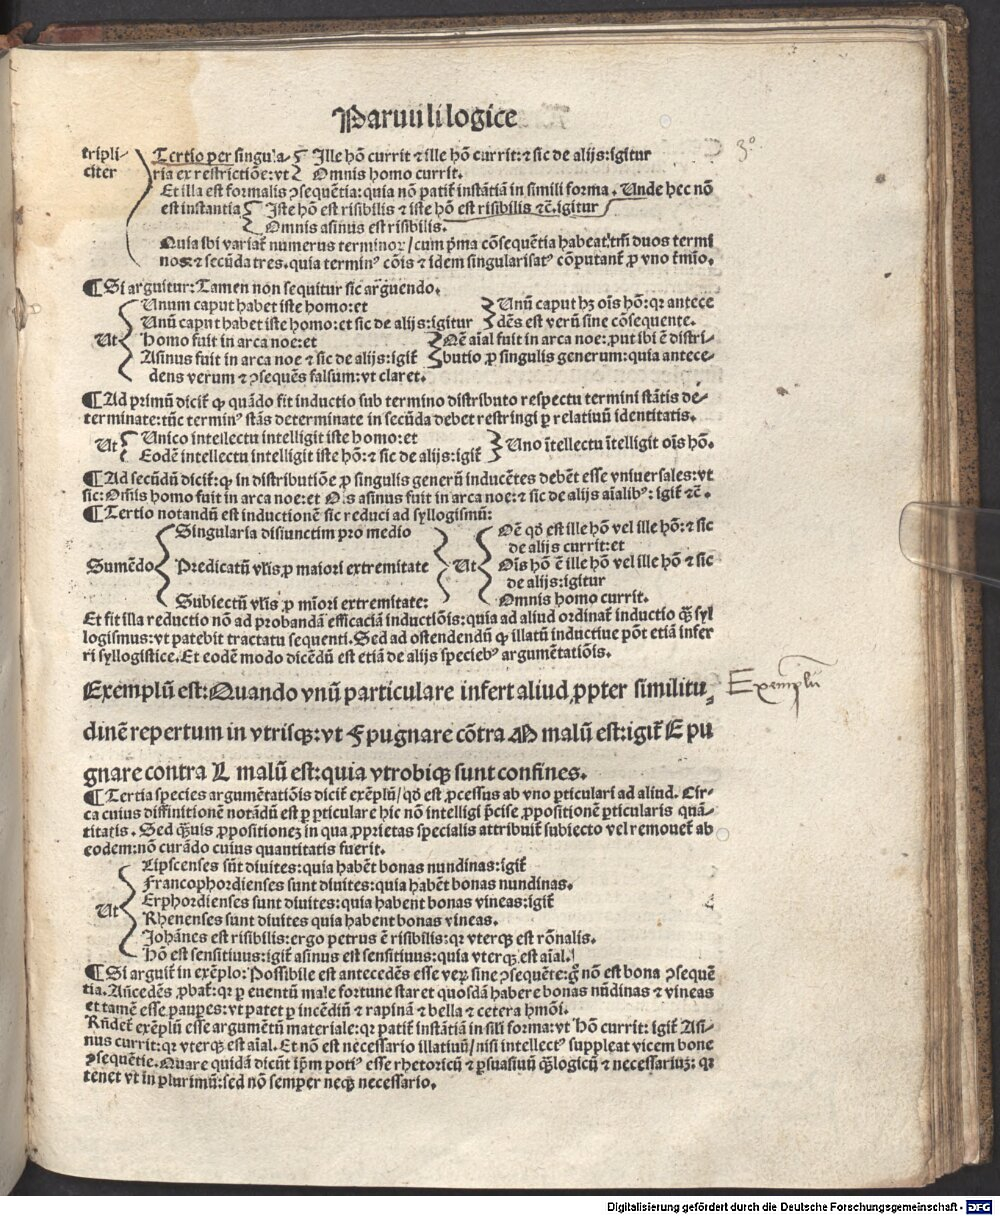 Paruuli logice
tripli- Tertio per singula- Ille hō currit ⁊ ille hō currit: ⁊ sic de alijs: igitur
citer ria ex restrictiōe: vt Omnis homo currit.
Et illa est formalis ꝯsequētia: quia nō patit᷑ instātiā in simili forma. Unde hec nō
est instantia Iste hō est risibilis ⁊ iste hō est risibilis ⁊c̄. igitur
Omnis asinus est risibilis.
Quia ibi variat᷑ numerus terminoꝝ/cum p̄ma cōsequētia habeat tm̄ duos termi
nos: ⁊ secūda tres. quia terminꝰ cōis ⁊ idem singularisatꝰ cōputant᷑ ꝓ vno t̄mīo.
¶ Si arguitur: Tamen non sequitur sic arguendo.
Unum caput habet iste homo: et Unū caput hꝫ oīs hō: qꝛ antece
Unū caput habet iste homo: et sic de alijs: igitur dēs est verū sine cōsequente.
Ut Homo fuit in arca noe: et Oē aīal fuit in arca noe: ꝓut ibi ē distri-
Asinus fuit in arca noe ⁊ sic de alijs: igit᷑ butio ꝓ singulis generum: quia antece-
dens verum ⁊ ꝯsequēs falsum: vt claret.
¶ Ad primū dicit᷑ ꝙ quādo fit inductio sub termino distributo respectu termini stātis de-
terminate: tūc terminꝰ stās determinate in secūda debet restringi ꝑ relatiuū identitatis.
Ut Unico intellectu intelligit iste homo: et Uno ītellectu ītelligit oīs hō.
Eodē intellectu intelligit iste hō: ⁊ sic de alijs: igit᷑
¶ Ad secūdū dicit᷑: ꝙ in distributiōe ꝓ singulis generū inducētes debēt esse vniuersales: vt
sic: Om̄is homo fuit in arca noe: et Oīs asinus fuit in arca noe: ⁊ sic de alijs aīalibꝰ: igit᷑ ⁊c̄.
¶ Tertio notandū est inductionē sic reduci ad syllogismū:
Singularia disiunctim pro medio Oē qd̄ est ille hō vel ille hō: ⁊ sic
de alijs currit: et
Sumēdo Predicatū vlis ꝓ maiori extremitate Ut Oīs hō ē ille hō vel ille hō ⁊ sic
de alijs: igitur
Subiectū vlis ꝓ mīori extremitate: Omnis homo currit.
Et fit illa reductio nō ad probandā efficaciā inductiōis: quia ad aliud ordinat᷑ inductio q̄ꝫ syl
logismus: vt patebit tractatu sequenti. Sed ad ostendendū ꝙ illatū inductiue pōt etiā infer
ri syllogistice. Et eodē modo dicēdū est etiā de alijs speciebꝰ argumētatiōis.
Exemplū est: Quando vnū particulare infert aliud ꝓpter similitu⸗ Exemplū
dinē repertum in vtrisqꝫ: vt F pugnare cōtra M malū est: igit᷑ E pu
gnare contra L malū est: quia vtrobiqꝫ sunt confines.
¶ Tertia species argumētatiōis dicit᷑ exēplū/qd̄ est ꝓcessus ab vno ꝑticulari ad aliud. Cir-
ca cuius diffinitionē notādū est ꝑ ꝑticulare hic nō intelligi p̄cise ꝓpositionē ꝑticularis quā-
titatis. Sed q̄ꝫuis ꝓpositionez in qua ꝓprietas specialis attribuit᷑ subiecto vel remouet᷑ ab
eodem: nō curādo cuius quantitatis fuerit.
Lipscenses sūt diuites: quia habēt bonas nundinas: igit᷑
Francophordienses sunt diuites: quia habēt bonas nundinas.
Ut Erphordienses sunt diuites: quia habent bonas vineas: igit᷑
Rhenenses sunt diuites quia habent bonas vineas.
Johānes est risibilis: ergo petrus ē risibilis: qꝛ vterqꝫ est rōnalis.
Hō est sensitiuus: igit᷑ asinus est sensitiuus: quia vterqꝫ est aīal.
¶ Si arguit᷑ in exēplo: Possibile est antecedēs esse veꝝ sine ꝯsequēte: g̊ nō est bona ꝯsequē
tia. Añcedēs ꝓbat᷑: qꝛ ꝑ euentū male fortune staret quosdā habere bonas nūdinas ⁊ vineas
et tamē esse pauꝑes: vt patet ꝑ incēdiū ⁊ rapinā ⁊ bella ⁊ cetera hmōi.
Rn̄det᷑ exēplū esse argumētū materiale: qꝛ patit᷑ instātiā in sili forma: vt Hō currit: igit᷑ Asi-
nus currit: qꝛ vterqꝫ est aīal. Et nō est necessario illatiuū/nisi intellectꝰ suppleat vicem bone
ꝯsequētie. Quare quidā dicūt ip̄m potiꝰ esse rhetoricū ⁊ ꝑsuasiuū q̄ꝫ logicū ⁊ necessariuꝫ: qꝛ
tenet vt in plurimū: sed nō semper neqꝫ necessario.
3º
Digitalisierung gefördert durch die Deutsche Forschungsgemeinschaft - DFG